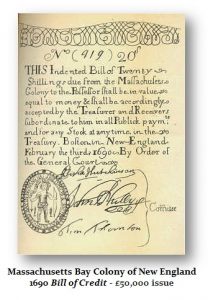 No (919) 20s
THIS Indented Bill of Twenty
Shillings due from the Massachusets
Colony to the Possessor shall be in value
equal to money & shall be accordingly
accepted by the Treasurer and Receivers
subordinate to him in all Publick paymts
and for any Stock at any time in the
Treasury. Boston in New-England
February the third 1690. By Order of
the General Court
Elisha Hutchinson
John Phillips
Tim Thornton
Comittee
Massachusetts Bay Colony of New England
1690 Bill of Credit - £50,000 issue